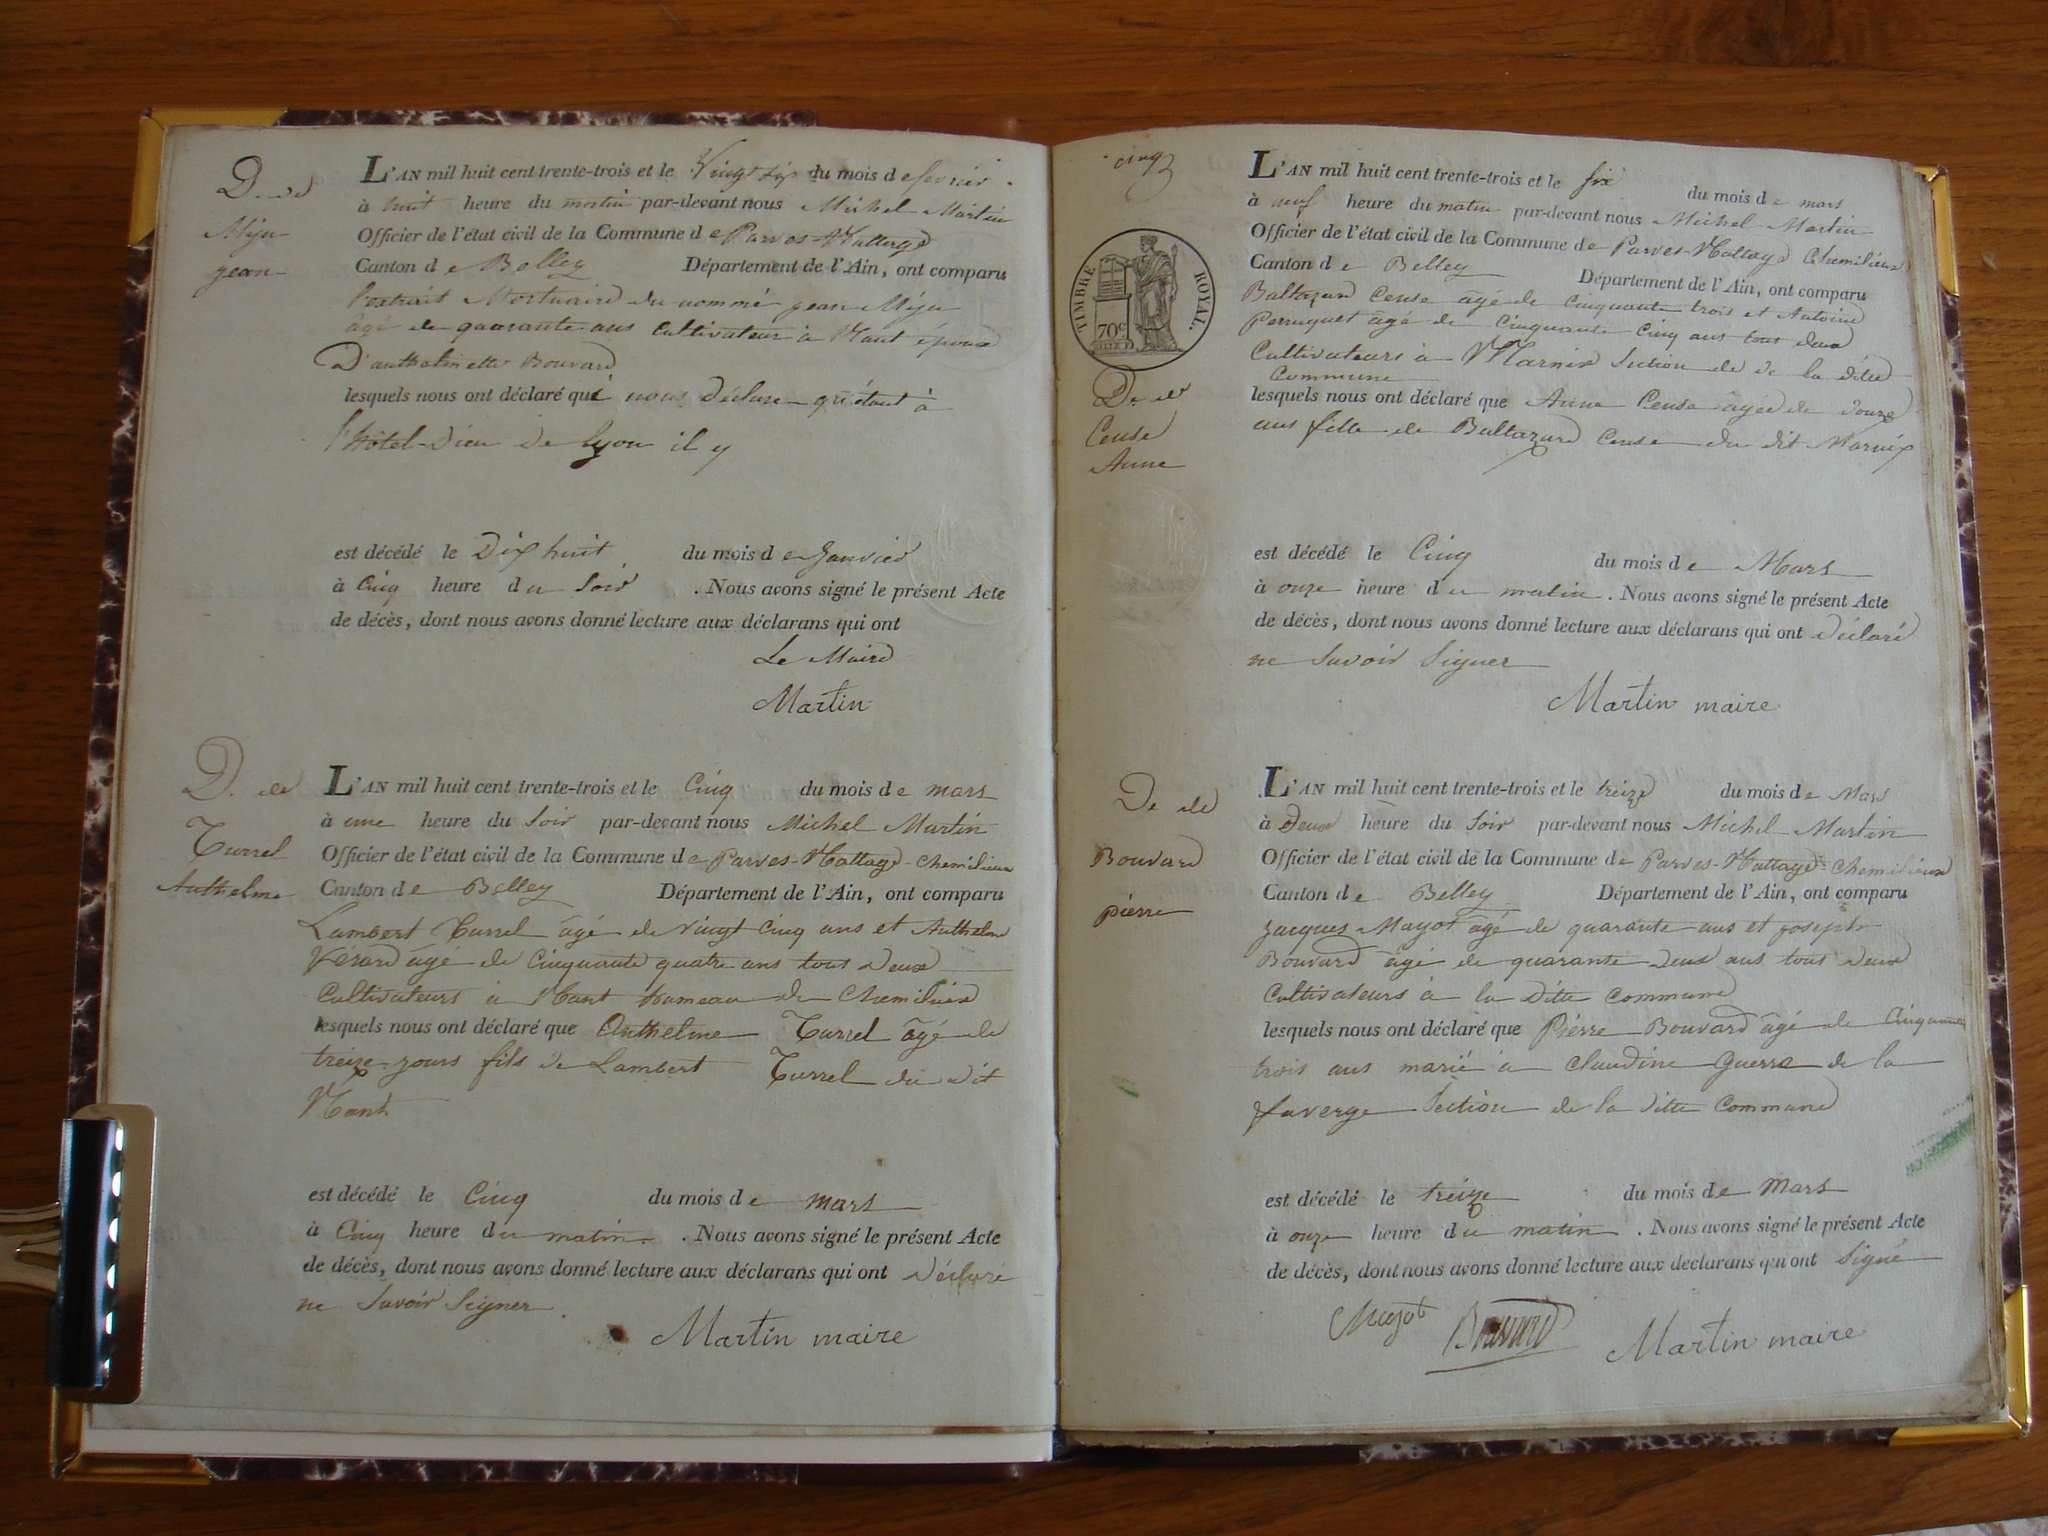 D. de
Méju
jean
L'AN mil huit cent trente-trois et le Vingt six du mois de fevrier
à huit heure du matin par-devant nous Michel Martin
Officier de l'état civil de la Commune de Parves-Nattage
Canton de Belley Département de l'Ain, ont comparu
l'extrait Mortuaire du nommé jean Méju
âgé de quarante ans Cultivateur à Nant époux
D'anthelmette Bouvard
lesquels nous ont déclaré que nous déclare qu'étant à
l'hôtel-Dieu de Lyon il y
est décédé le Dix huit du mois de Janvier
à Cinq heure du Soir . Nous avons signé le présent Acte
de décès, dont nous avons donné lecture aux déclarans qui ont
Le Maire
Martin
D. de
Turrel
Anthelme
L'AN mil huit cent trente-trois et le Cinq du mois de mars
à une heure du Soir par-devant nous Michel Martin
Officier de l'état civil de la Commune de Parves-Nattage-Chemilieux
Canton de Belley Département de l'Ain, ont comparu
Lambert Turrel âgé de vingt Cinq ans et Anthelme
Vérard âgé de Cinquante quatre ans tous deux
Cultivateurs à Nant hameau de Chemilieu
lesquels nous ont déclaré que Anthelme Turrel âgé de
treize jours fils de Lambert Turrel du dit
Nant
est décédé le Cinq du mois de mars
à Cinq heure du matin . Nous avons signé le présent Acte
de décès, dont nous avons donné lecture aux déclarans qui ont déclaré
ne Savoir Signer
Martin maire
cinq
TIMBRE ROYAL.
70c
D. de
Ceuse
Anne
L'AN mil huit cent trente-trois et le six du mois de mars
à neuf heure du matin par-devant nous Michel Martin
Officier de l'état civil de la Commune de Parves-Nattage Chemilieux
Canton de Belley Département de l'Ain, ont comparu
Baltazard Ceuse âgé de cinquante trois et Antoine
Perruquet âgé de Cinquante Cinq ans tous deux
Cultivateurs à Marnix Section de de la ditte
Commune
lesquels nous ont déclaré que Anne Ceuse âgée de douze
ans fille de Baltazard Ceuse du dit Marnix
est décédé le Cinq du mois de Mars
à onze heure du matin . Nous avons signé le présent Acte
de décès, dont nous avons donné lecture aux déclarans qui ont déclaré
ne Savoir Signer
Martin maire
De de
Bouvard
pierre
L'AN mil huit cent trente-trois et le treize du mois de Mars
à Deux heure du Soir par-devant nous Michel Martin
Officier de l'état civil de la Commune de Parves-Nattage-Chemilieux
Canton de Belley Département de l'Ain, ont comparu
Jacques Mayot âgé de quarante ans et joseph
Bouvard âgé de quarante deux ans tous deux
Cultivateurs à la Ditte Commune
lesquels nous ont déclaré que Pierre Bouvard âgé de Cinquante
trois ans marié à Claudine Guerre de la
faverge Section de la ditte Commune
est décédé le treize du mois de Mars
à onze heure du matin . Nous avons signé le présent Acte
de décès, dont nous avons donné lecture aux déclarans qui ont Signé
Mayot Bouvard Martin maire